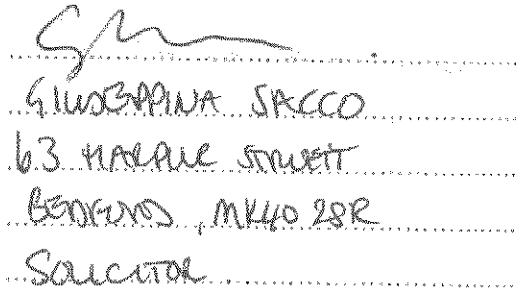 GIUSEPPINA SACCO
63 HARPUR STREET
BEDFORD, MK40 2SR
SOLICITOR